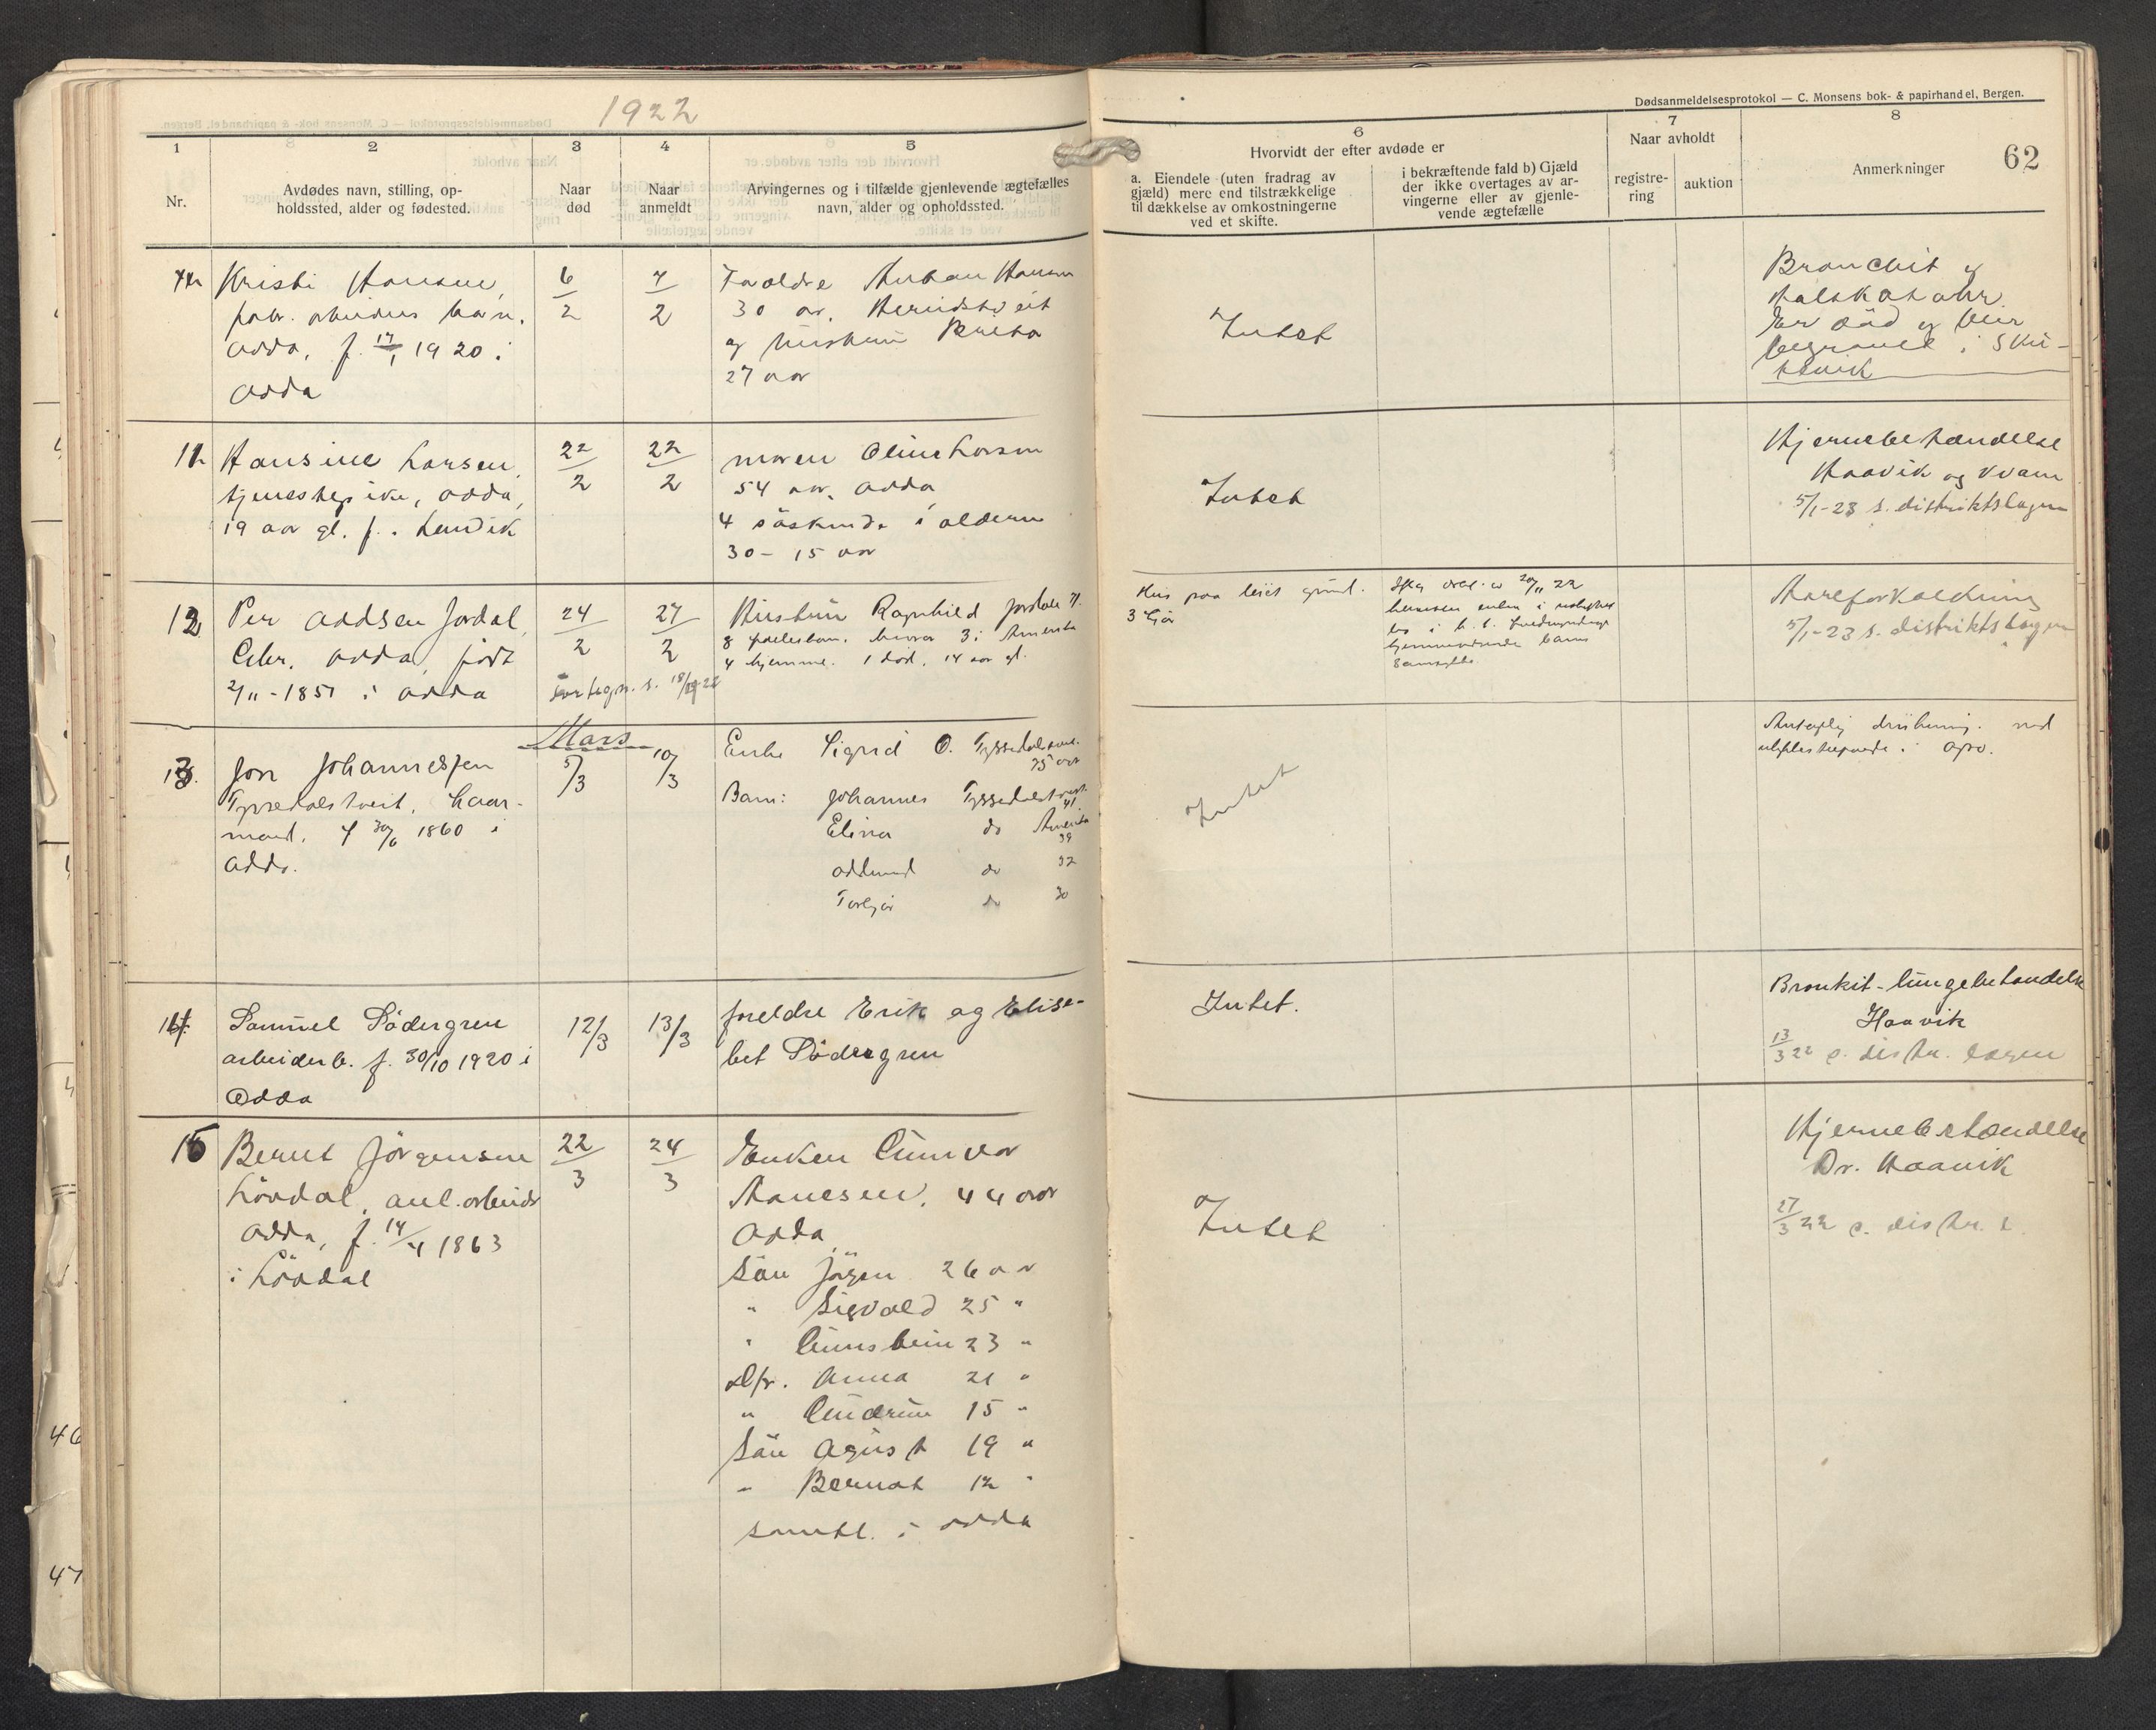 1922
Dødsanmeldelsesprotokol — C. Monsens bok- & papirhandel, Bergen.
62
1
Nr.
2
Avdødes navn, stilling, op-
holdssted, alder og fødested.
3
Naar
død
4
Naar
anmeldt
5
Arvingernes og i tilfælde gjenlevende ægtefælles
navn, alder og opholdssted.
6
Hvorvidt der efter avdøde er
a. Eiendele (uten fradrag av
gjæld) mere end tilstrækkelige
til dækkelse av omkostningerne
ved et skifte.
i bekræftende fald b) Gjæld
der ikke overtages av ar-
vingerne eller av gjenle-
vende ægtefælle
7
Naar avholdt
registre-
ring
auktion
8
Anmerkninger
Kristi Hansen,
fabr. arbeiders barn,
Odda, f. 1920 i
Odda
6/2
7/2
Forældre Hansen
30 ar,
og hustru Brita
27 aar
Intet
Bronchit og
Er død og blir
begravet i Sku-
tevik
11
Hansine Larsen,
tjenestepike, Odda,
19 aar gl. f. i Lenvik
22/2
22/2
moren Oline Larsen
54 aar, Odda
4 søskende i alderen
30 - 15 aar
Intet
Hjernebetændelse
Haavik og Kvam
5/1-23 s. distriktslægen
12
Per Oddsen Jordal,
Odda, født
2/11-1851 i Odda
24/2
27/2
Hustru Ragnhild Jordal
8 fællesbarn. hvorav 3 i Amerika
4 hjemme. 1 død, 14 aar gl.
Hus paa leiet grund.
3 Gjør
Aareforkalkning
5/1-23 s. distriktslægen
Mars
13.
Jon Johannessen
Tyssedalstveit, kaar-
mand, f 30/6 1860 i
Odda.
5/3
10/3
Enke Sigrid O. Tyssedalstveit
75 aar
Barn: Johannes Tyssedalstveit
41
Elina do Amerika
39
Oddmund do 32
Torbjør do 30
Intet
Antagelig drukning. ved
ulykkeshændelse i Opo.
14.
Samuel Södergren
arbeiderb. f. 30/10 1920 i
Odda
12/3
13/3
foreldre Erik og Elisa-
bet Södergren
Intet.
Bronkit - lungebetændelse
Haavik
13/3 22 s. distr. lægen
15
Bernt Jörgensen
Lövdal, anl. arbeider
Odda, f. 14/4 1863
i Lövdal
22/3
24/3
Enken Gunvor
Hansen, 44 aar
Odda
Sön Jörgen 26 aar
" Sigvald 25 "
" Gunstein 23 "
dtr. Anna 21 "
" Gudrun 15 "
Sön Agust 19 "
" Bernat 12 "
samtl. i Odda
Intet
Hjernebetændelse
Dr. Haavik
27/3 22 s. distr. l